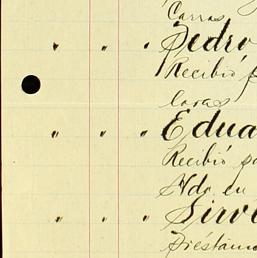 Carras
" " " Pedro
Recibió
" " " Edua
Recibió
Hdo en
" " " Sirve
Préstamo